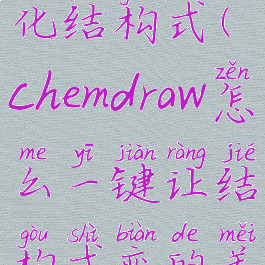 化结构式(
zěn
chemdraw怎
me yī jiàn ràng jié
么一键让结
gòu shì biàn de měi
构式变的美